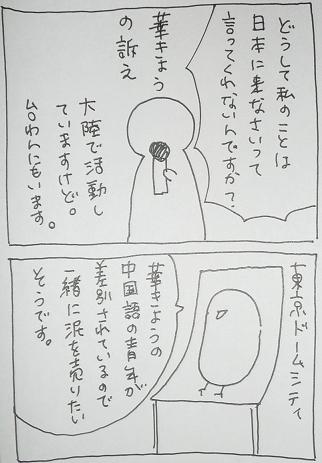 どうして私のことは
日本に来なさいって
言ってくれないんですか?
華きょう
の訴え
大陸で活動し
ていますけど。
台わんにもいます。
東京ドームシティ
華きょうの
中国語の青年が
差別されているので
一緒に泥を売りたい
そうです。